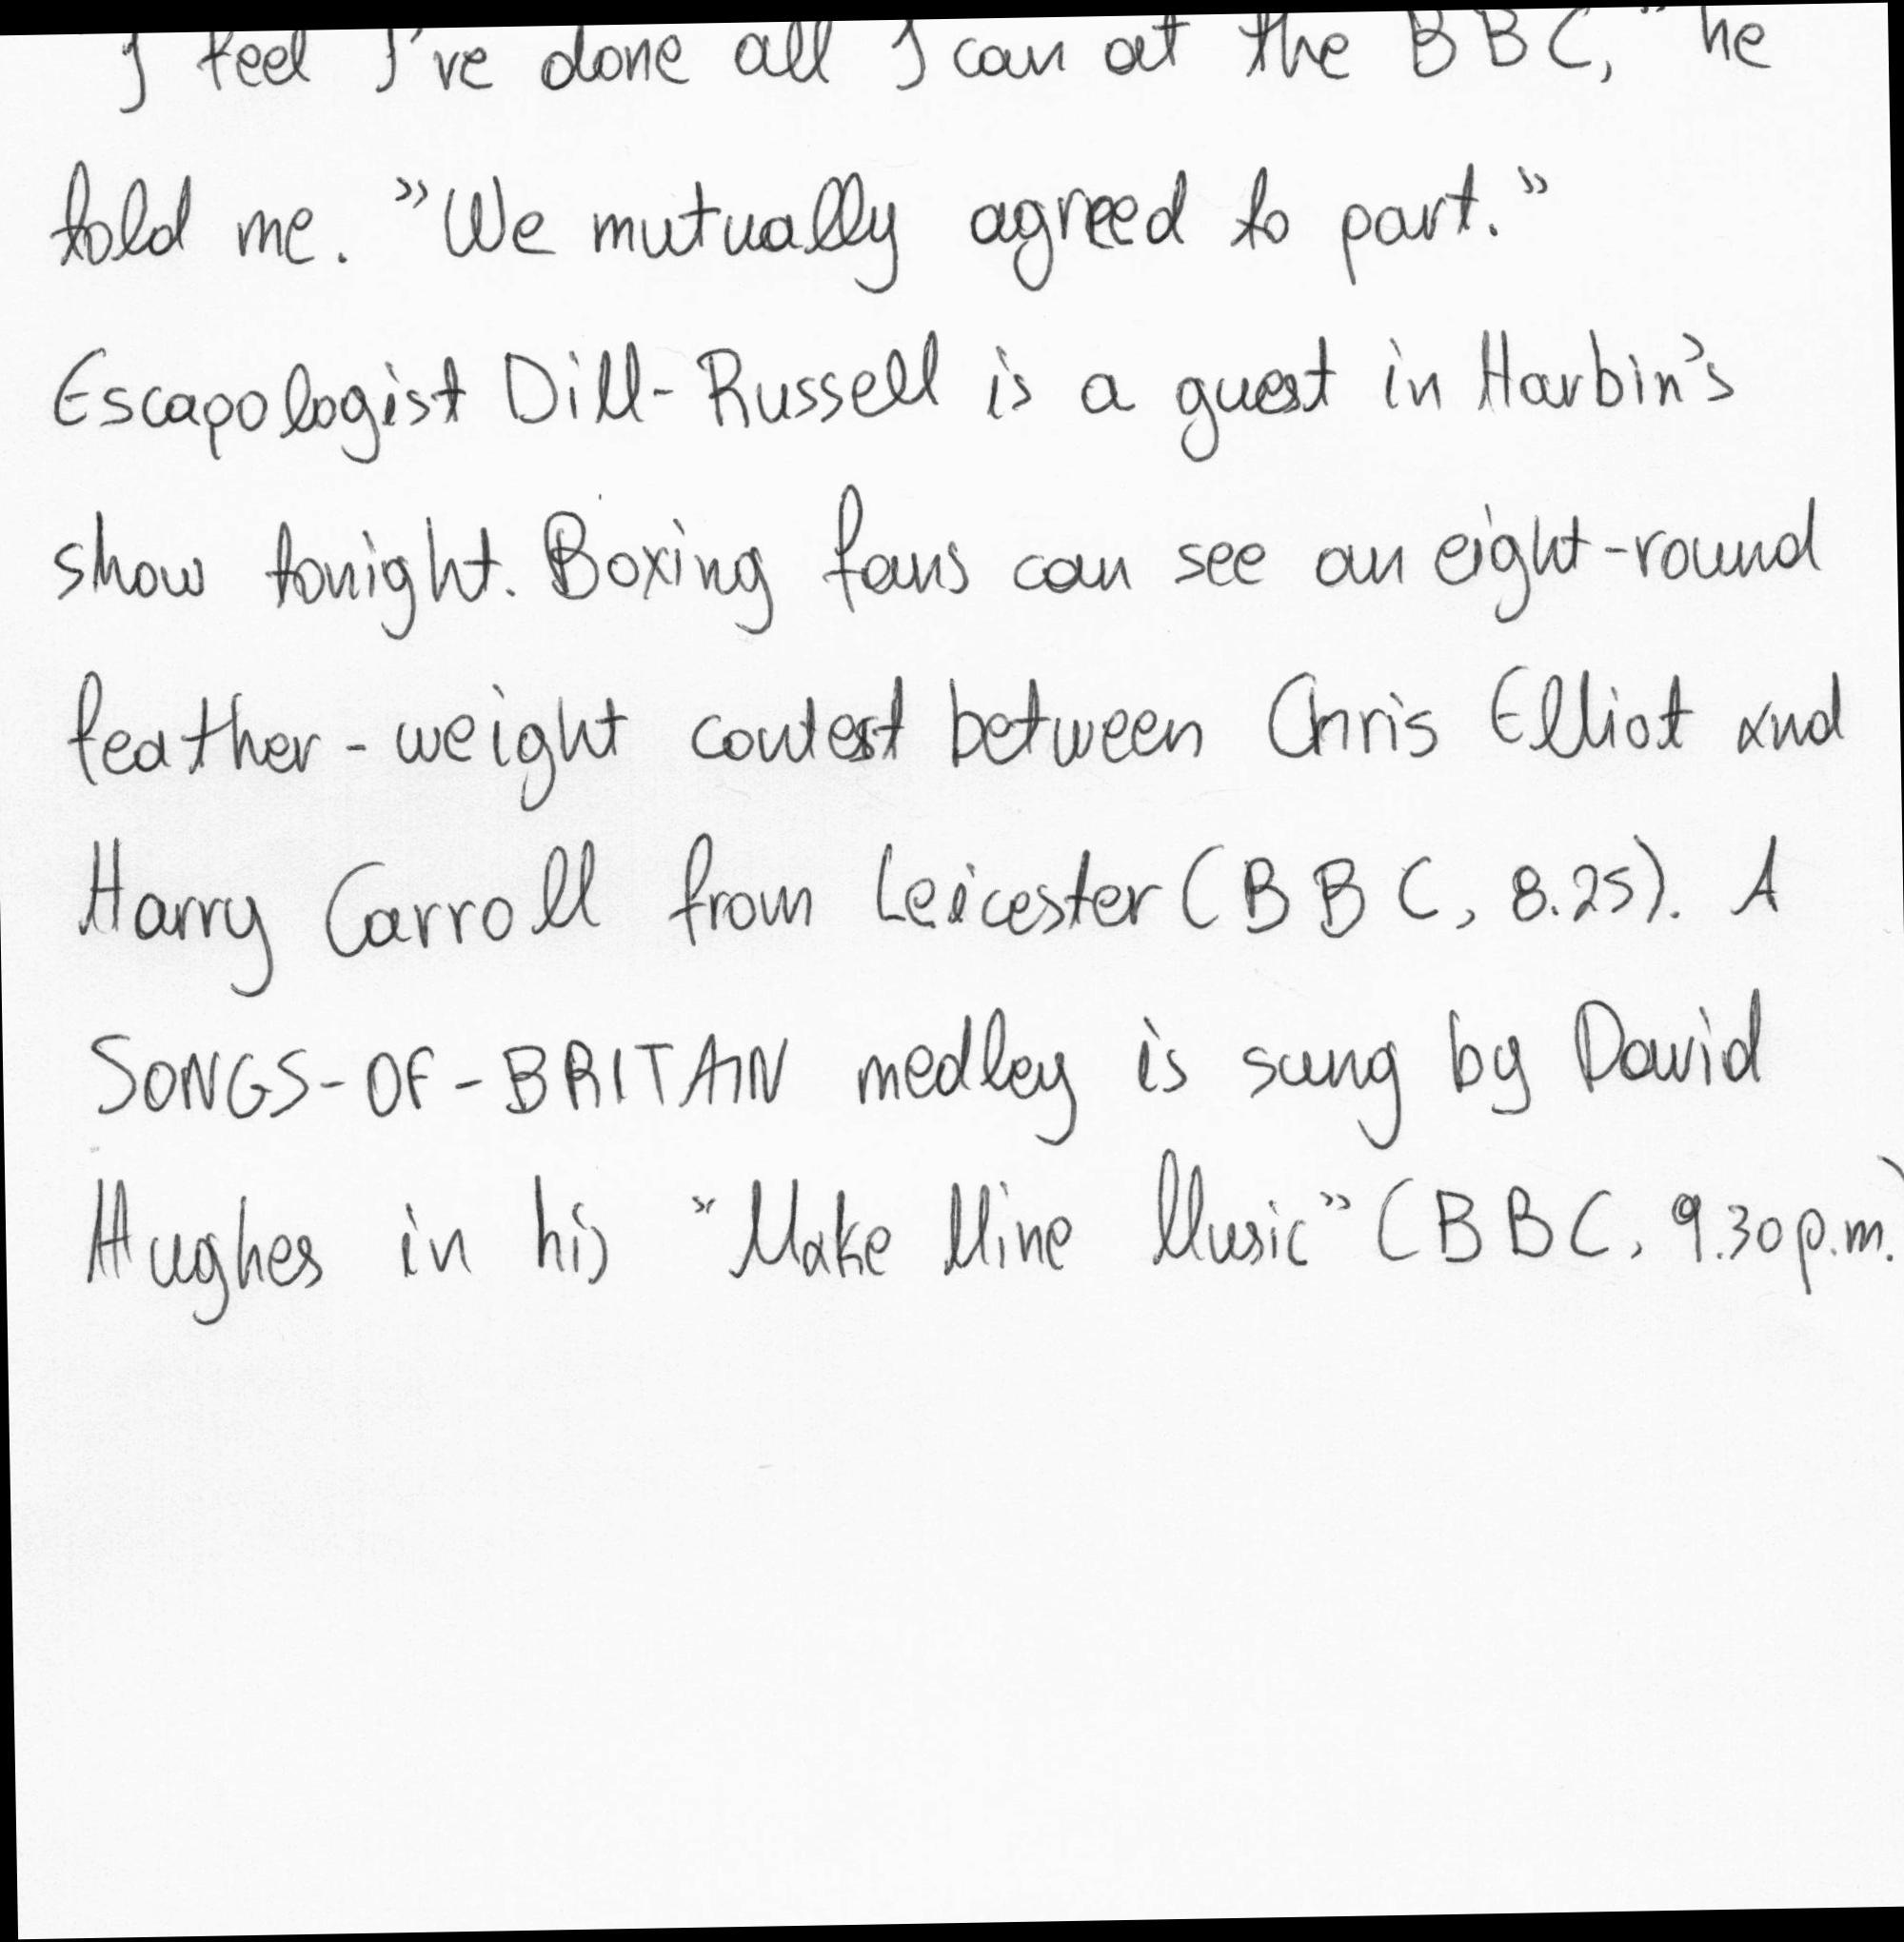 I feel I've done all I can at the BBC," he
told me. "We mutually agreed to part."
Escapologist Dill-Russell is a guest in Harbin's
show tonight. Boxing fans can see an eight-round
feather-weight contest between Chris Elliot and
Harry Carroll from Leicester (BBC, 8.25). A
SONGS-OF-BRITAIN medley is sung by David
Hughes in his "Make Mine Music" (BBC, 9.30p.m.)